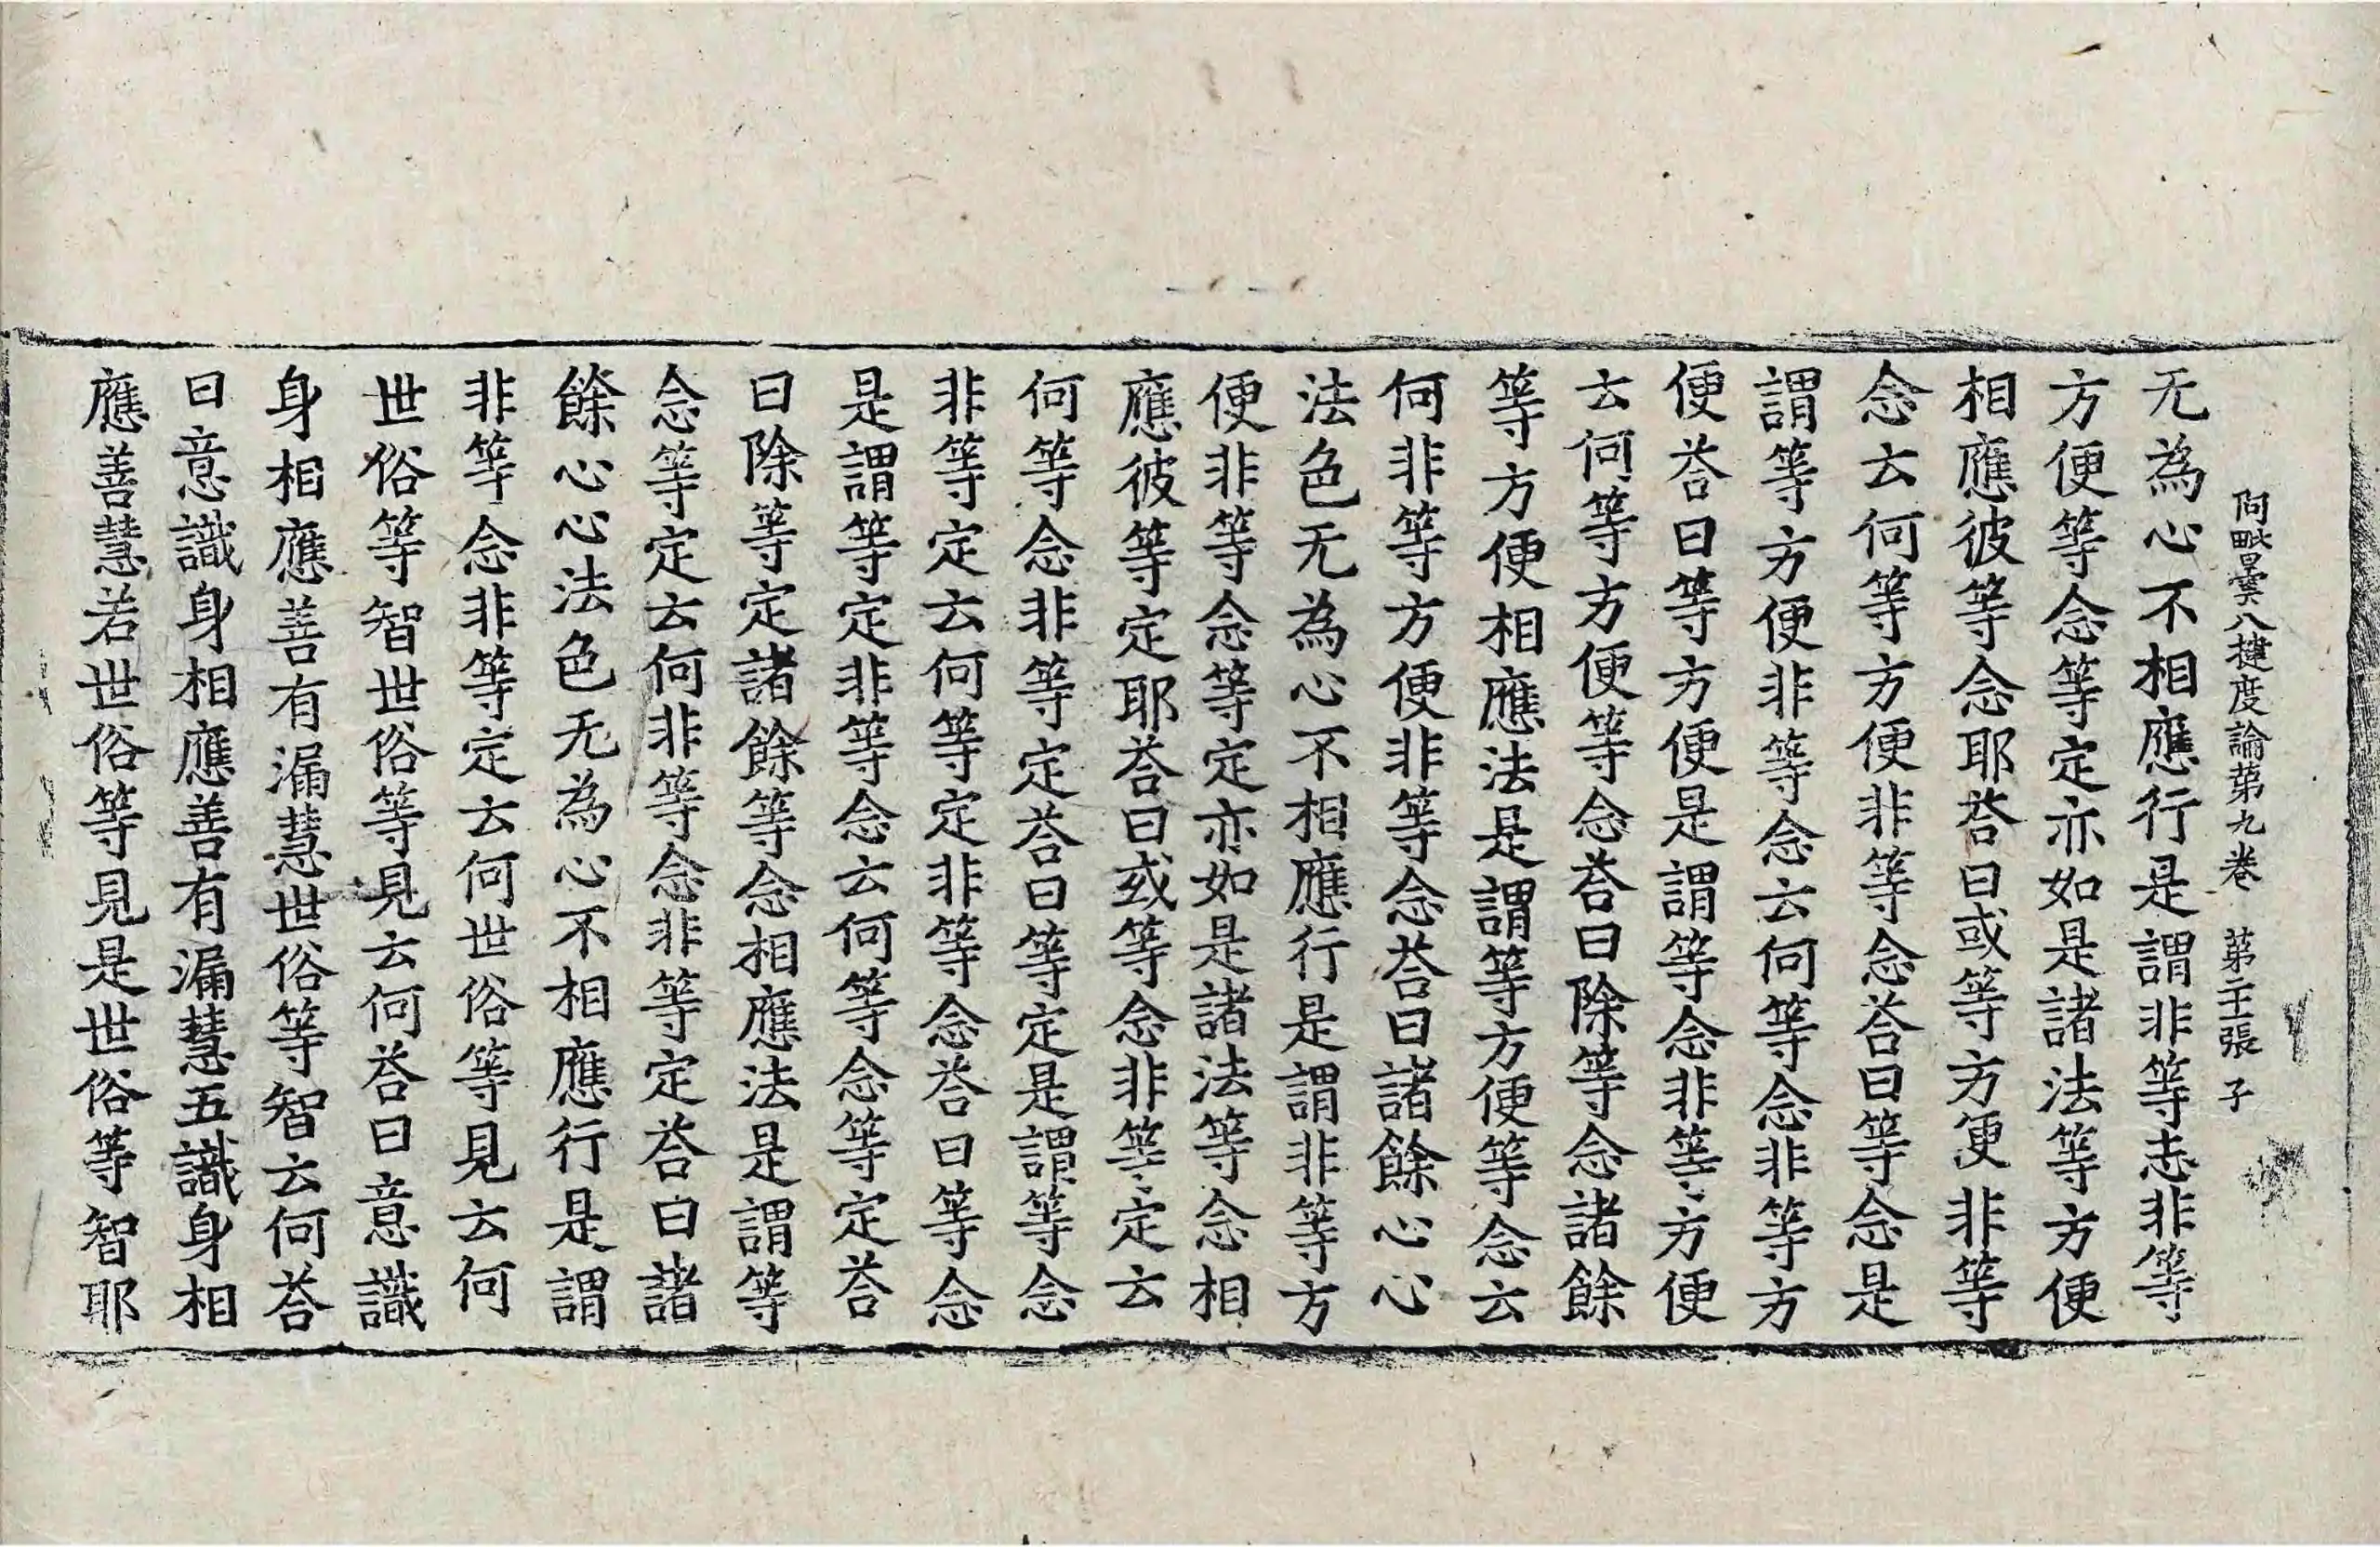 阿毗曇八揵度論苐九卷 苐張 子
无為心不相應行是謂非等志非等
方便等念等定亦如是諸法等方便
相應彼等念耶荅曰或等方便非等
念云何等方便非等念荅曰等念是
謂等方便非等念云何等念非等方
便荅曰等方便是謂等念非等方便
云何等方便等念荅曰除等念諸餘
等方便相應法是謂等方便等念云
何非等方便非等念荅曰諸餘心心
法色无為心不相應行是謂非等方
便非等念等定亦如是諸法等念相
應彼等定耶荅曰或等念非等定云
何等念非等定荅曰等定是謂等念
非等定云何等定非等念荅曰等念
是謂等定非等念云何等念等定荅
曰除等定諸餘等念相應法是謂等
念等定云何非等念非等定荅曰諸
餘心心法色无為心不相應行是謂
非等念非等定云何世俗等見云何
世俗等智世俗等見云何荅曰意識
身相應善有漏慧世俗等智云何荅
曰意識身相應善有漏慧五識身相
應善慧若世俗等見是世俗等智耶